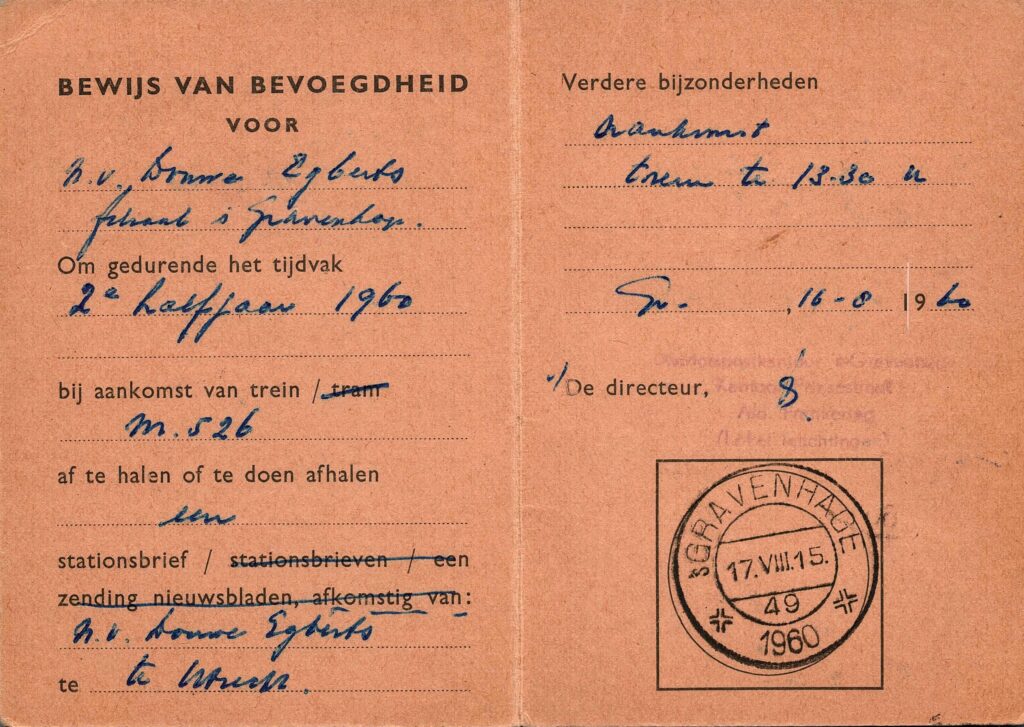 BEWIJS VAN BEVOEGDHEID
VOOR
N.V. Douwe Egberts
's Gravenhage.
Om gedurende het tijdvak
2e halfjaar 1960
bij aankomst van trein / tram
m. 526
af te halen of te doen afhalen
een
stationsbrief / stationsbrieven / een
zending nieuwsbladen, afkomstig van:
N.V. Douwe Egberts
te te Utrecht.
Verdere bijzonderheden
Aankomst
trein te 13.30 u
Gr. , 16-8 1960
De directeur,
'sGRAVENHAGE
17.VIII.15.
49
1960